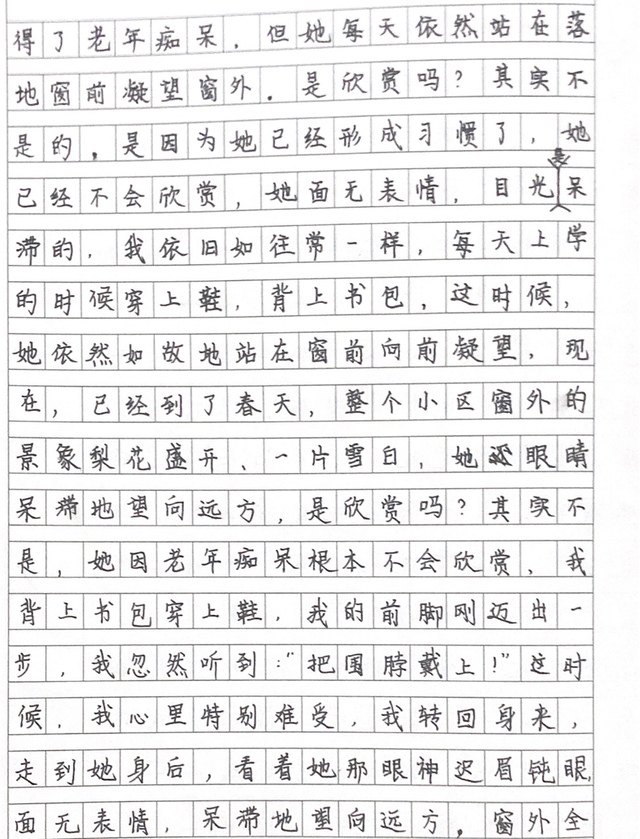 得了老年痴呆，但她每天依然站在落
地窗前凝望窗外。是欣赏吗？其实不
是的，是因为她已经形成习惯了，她
已经不会欣赏，她面无表情，目光呆
滞的，我依旧如往常一样，每天上学
的时候穿上鞋，背上书包，这时候，
她依然如故地站在窗前向前凝望，现
在，已经到了春天，整个小区窗外的
景象梨花盛开、一片雪白，她眼睛
呆滞地望向远方，是欣赏吗？其实不
是，她因老年痴呆根本不会欣赏、我
背上书包穿上鞋，我的前脚刚迈出一
步，我忽然听到："把围脖戴上！"这时
候，我心里特别难受，我转回身来，
走到她身后，看着她那眼神迟眉钝眼，
面无表情，呆滞地望向远方，窗外全